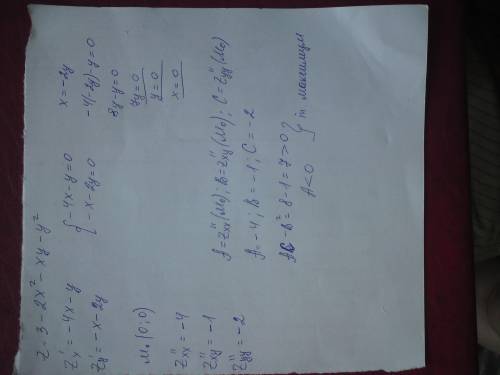 z = 3 - 2x² - xy - y²
z'x = -4x - y
z'y = -x - 2y
{ -4x - y = 0
{ -x - 2y = 0
x = -2y
-4(-2y) - y = 0
8y - y = 0
7y = 0
y = 0
x = 0
M₀(0; 0)
z''xx = -4
z''xy = -1
z''yy = -2
A = z''xx(M₀); B = z''xy(M₀); C = z''yy(M₀)
A = -4; B = -1; C = -2
AC - B² = 8 - 1 = 7 > 0
A < 0
} максимум